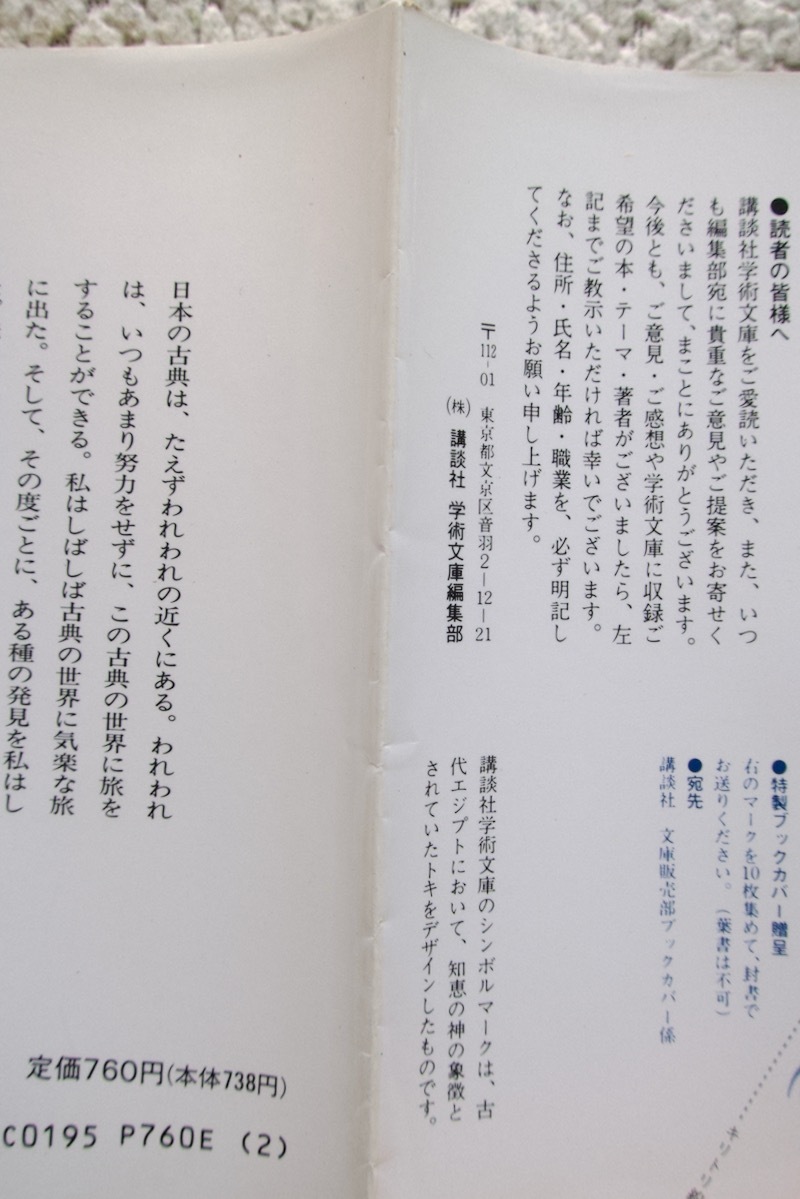 ●読者の皆様へ
講談社学術文庫をご愛読いただき、また、いつ
も編集部宛に貴重なご意見やご提案をお寄せく
ださいまして、まことにありがとうございます。
今後とも、ご意見・ご感想や学術文庫に収録ご
希望の本・テーマ・著者がございましたら、左
記までご教示いただければ幸いでございます。
なお、住所・氏名・年齢・職業を、必ず明記し
てくださるようお願い申し上げます。
〒112-01 東京都文京区音羽2-12-21
(株) 講談社 学術文庫編集部
●特製ブックカバー贈呈
右のマークを10枚集めて、封書で
お送りください。(葉書は不可)
●宛先
講談社 文庫販売部ブックカバー係
キリトリ
講談社学術文庫のシンボルマークは、古
代エジプトにおいて、知恵の神の象徴と
されていたトキをデザインしたものです。
日本の古典は、たえずわれわれの近くにある。われわれ
は、いつもあまり努力をせずに、この古典の世界に旅を
することができる。私はしばしば古典の世界に気楽な旅
に出た。そして、その度ごとに、ある種の発見を私はし
定価760円(本体738円)
C0195 P760E (2)